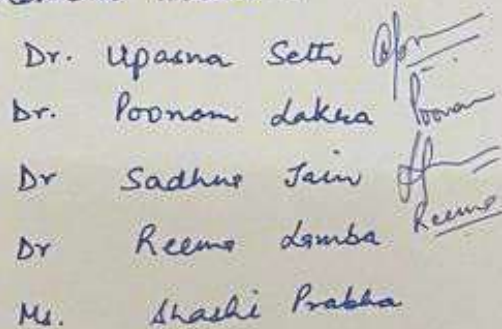 Dr. Upasna Seth
Dr. Poonam Lakra Poonam
Dr Sadhue Jain
Dr Reema Lamba Reema
Ms. Shashi Prabha